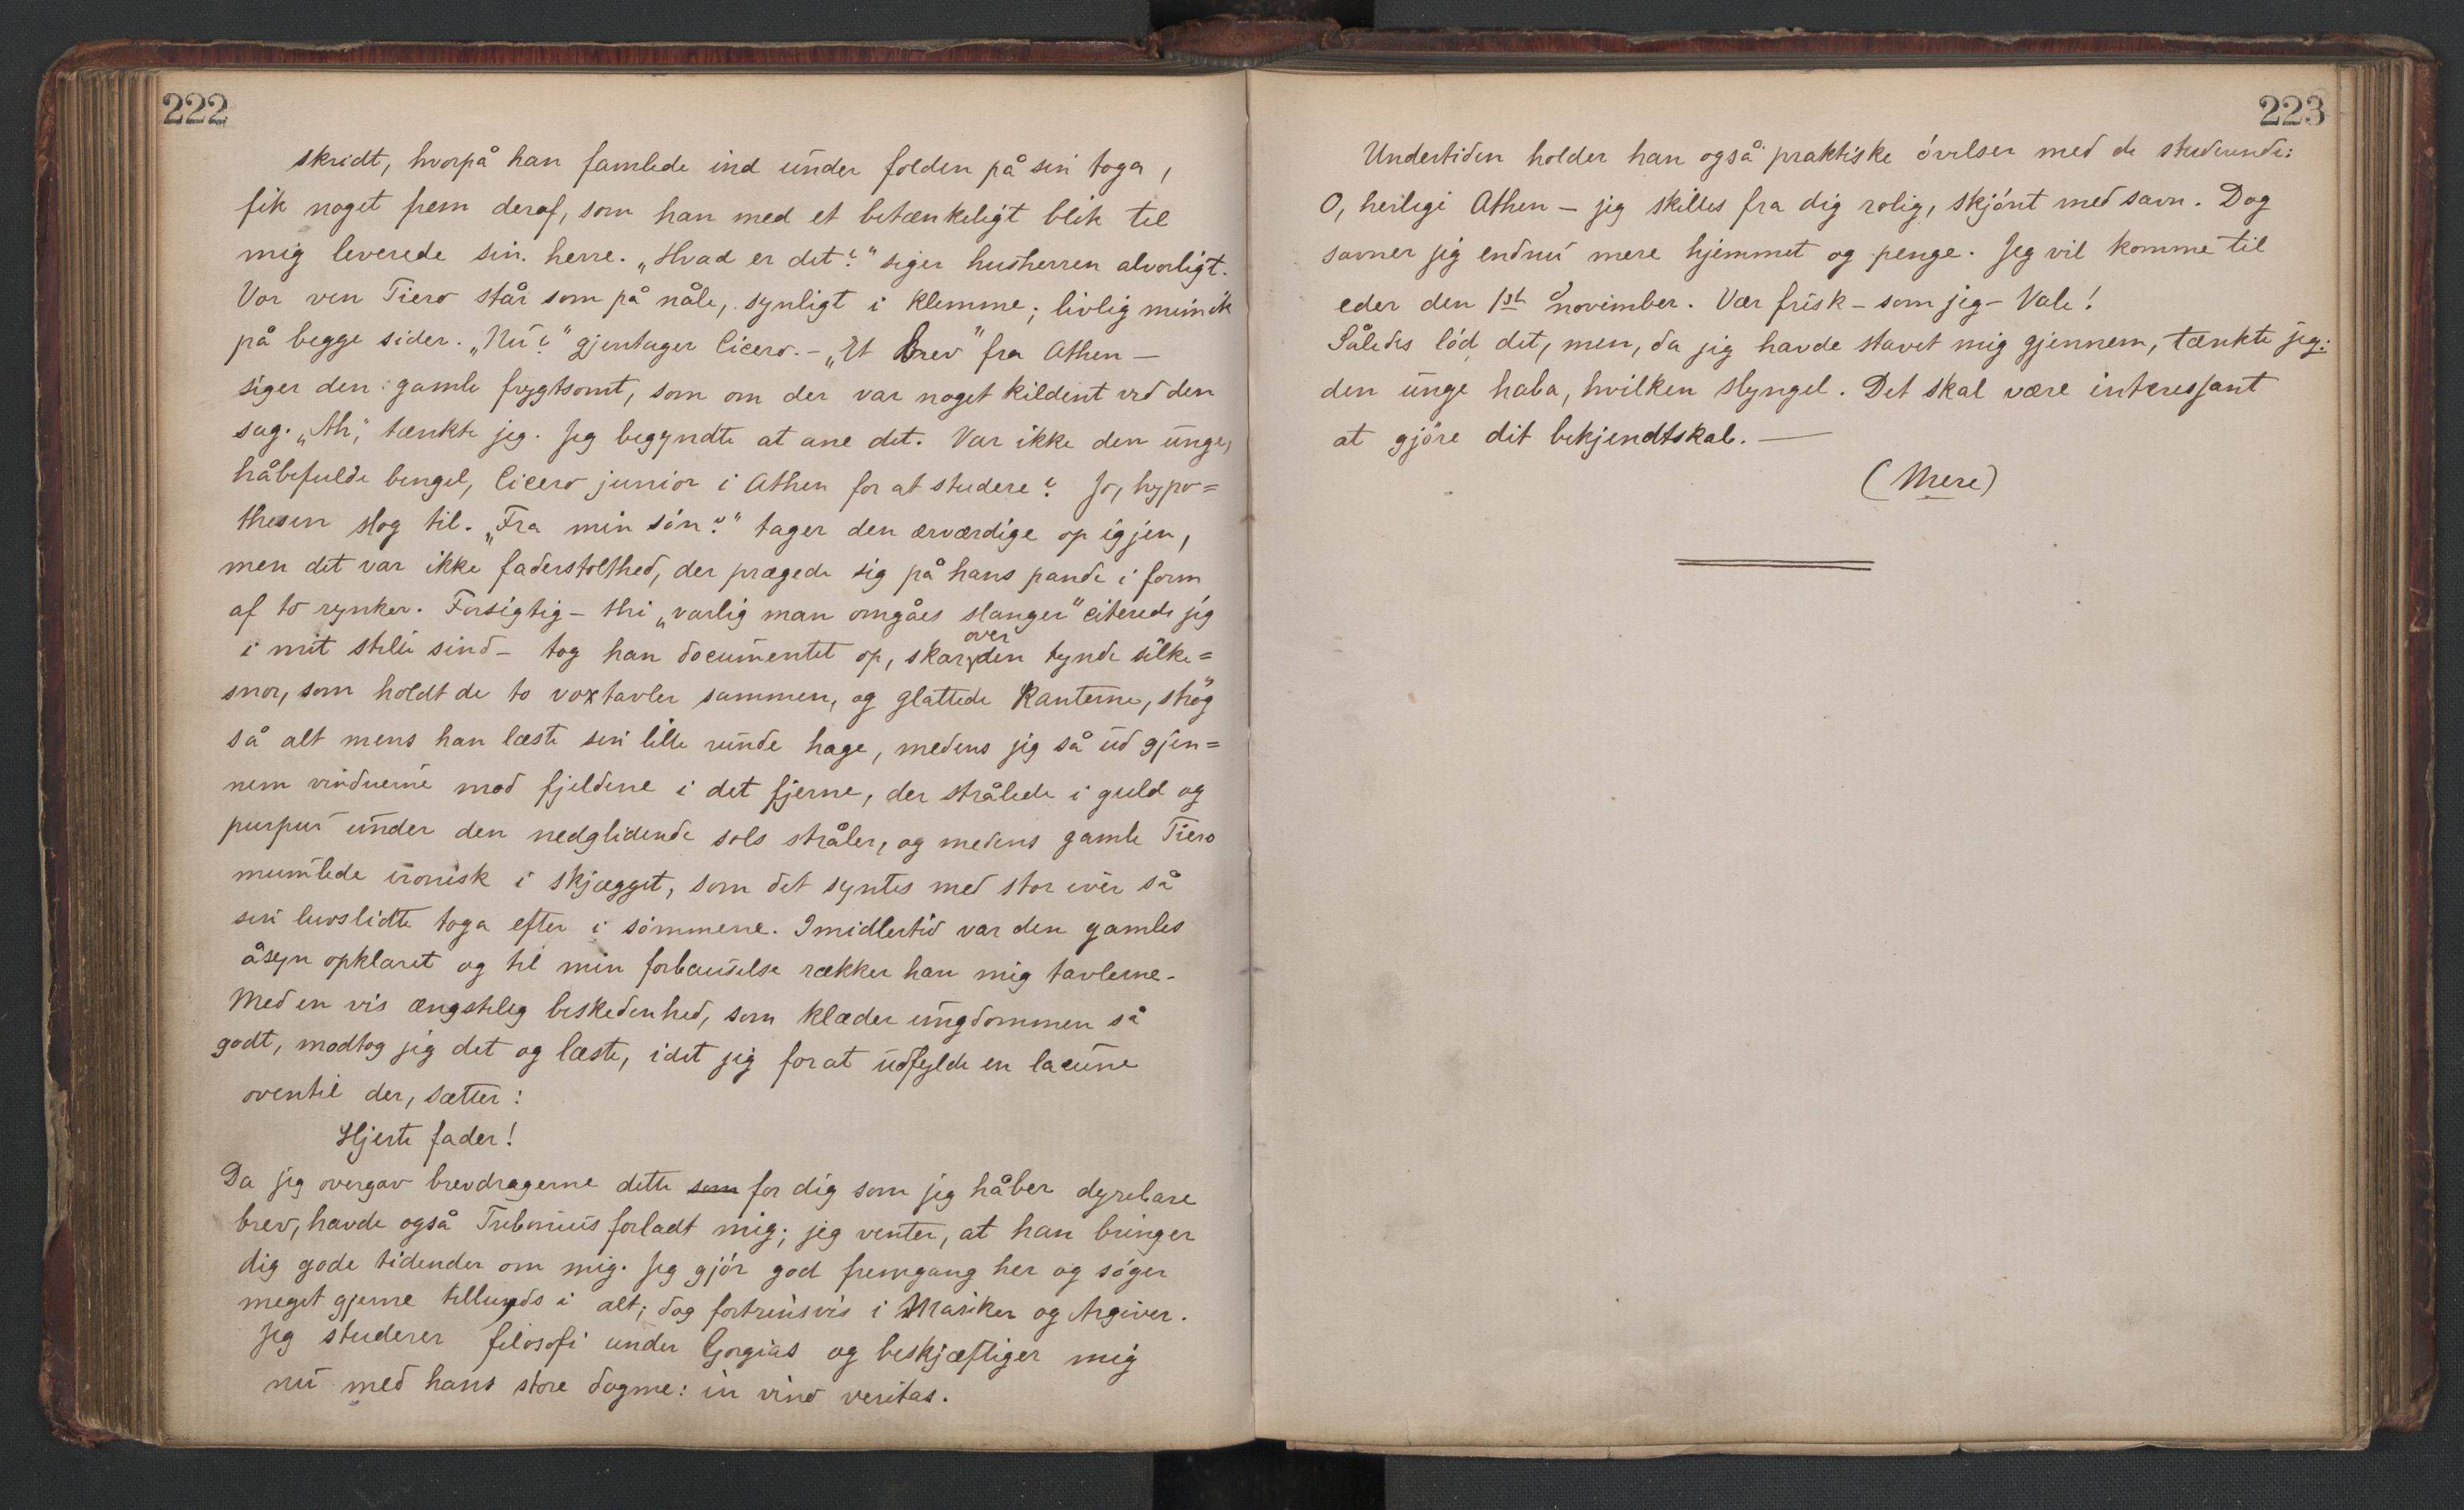 222
skridt, hvorpå han famlede ind under folden på sin toga,
fik noget frem deraf, som han med et betænkeligt blik til
mig leverede sin herre. „Hvad er det?" siger husherren alvorligt.
Vor ven Tiero står som på nåle, synligt i klemme; livlig mimik
på begge sider. „Nu?" gjentager Cicero. – „Et Brev" fra Athen –
siger den gamle frygtsomt, som om der var noget kildent ved den
sag. „Ah", tænkte jeg. Jeg begyndte at ane det. Var ikke den unge,
håbefulde bengel, Cicero junior i Athen for at studere? Jo, hypo=
thesen slog til. „Fra min søn?" tager den ærværdige op igjen,
men det var ikke faderstolthed, der prægede sig på hans pande i form
af to rynker. Forsigtig – thi „varlig man omgåes slanger" citerede jeg
i mit stille sind – tog han documentet op, skar over den tynde silke=
snor, som holdt de to voxtavler sammen, og glattede kanterne, strøg
så alt mens han læste sin lille runde hage, medens jeg så ud gjen=
nem vinduerne mod fjeldene i det fjerne, der strålede i guld og
purpur under den nedglidende sols stråler, og medens gamle Tiero
mumlede ironisk i skjægget, som det syntes med stor iver så
sin luvslidte toga efter i sømmene. Imidlertid var den gamles
åsyn opklaret og til min forbauselse rækker han mig tavlerne.
Med en vis ængstelig beskedenhed, som klæder ungdommen så
godt, modtog jeg det og læste, idet jeg for at udfylde en lacune
oventil der, sætter:
Hjerte fader!
Da jeg overgav brevdragerne dette som for dig som jeg håber dyrebare
brev, havde også Trebonius forladt mig; jeg venter, at han bringer
dig gode tidender om mig. Jeg gjør god fremgang her og søger
meget gjerne tellunds i alt; dog fortrinsvis i Masiker og Argiver.
Jeg studerer filosofi under Gorgias og beskjæftiger mig
nu med hans store dogme: in vino veritas.
223
Undertiden holder han også praktiske øvelser med de studerende:
O, heilige Athen – jeg skilles fra dig rolig, skjønt med savn. Dog
savner jeg endnu mere hjemmet og penge. Jeg vil komme til
eder den 1st november. Vær frisk – som jeg – Vale!
Således lød det, men, da jeg havde stavet mig gjennem, tænkte jeg:
den unge haba, hvilken slyngel. Det skal være interessant
at gjøre dit bekjendtskab. —
(Mere)